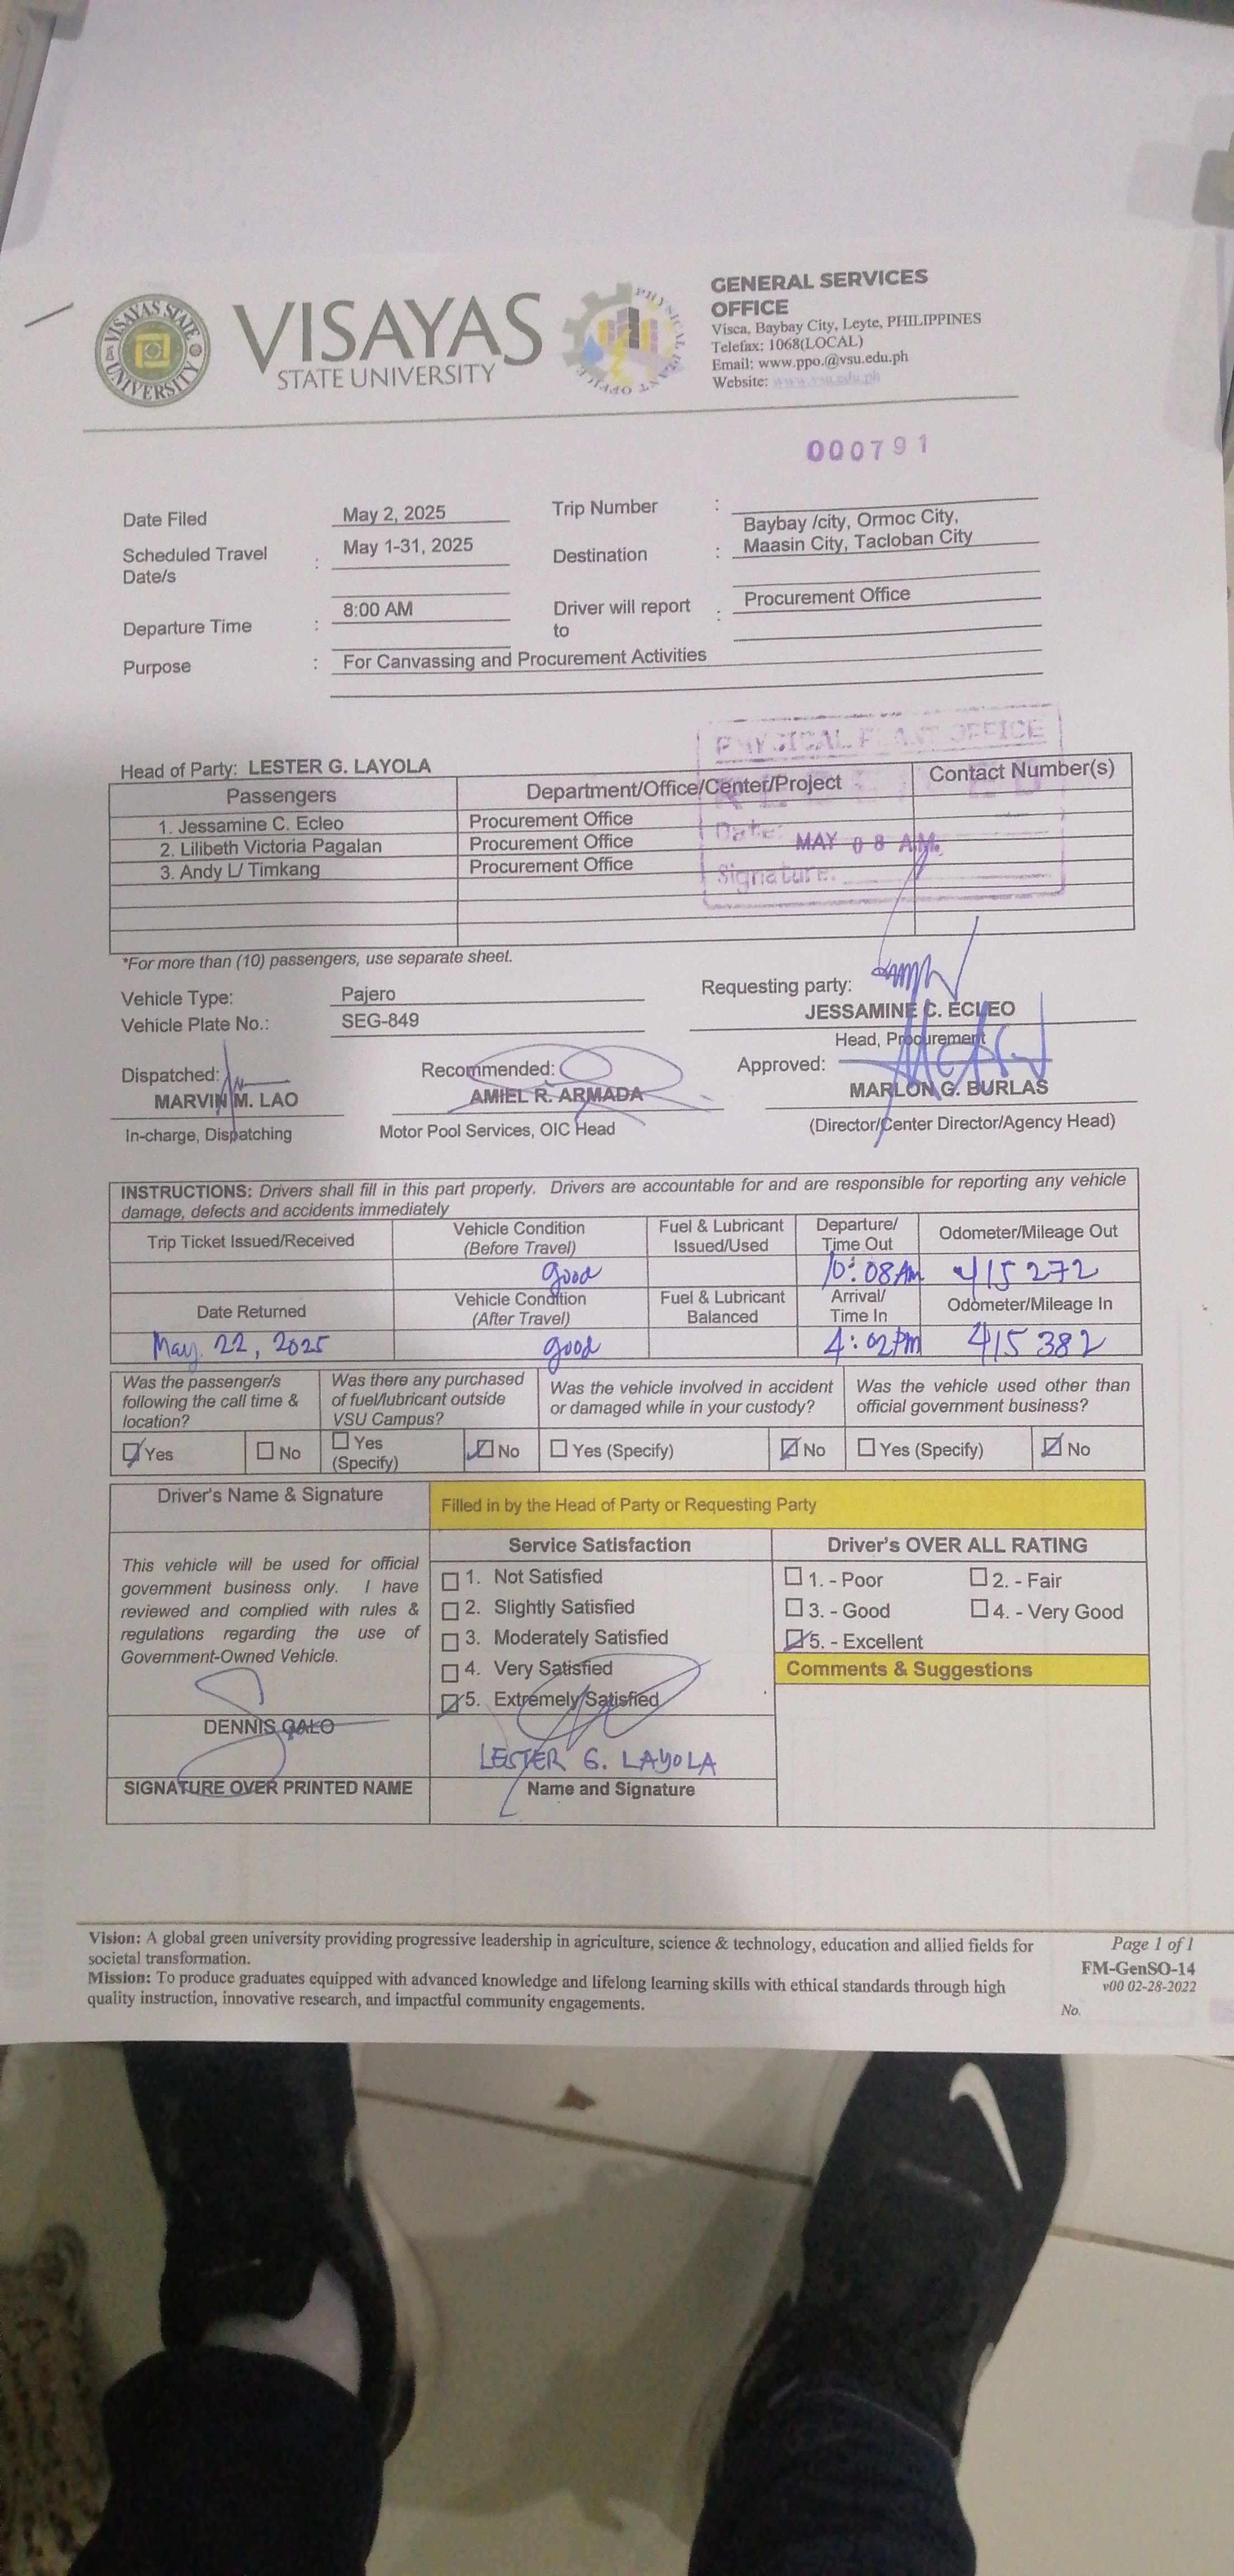 VISAYAS STATE UNIVERSITY
VISAYAS
STATE UNIVERSITY
PHYSICAL PLANT OFFICE
GENERAL SERVICES
OFFICE
Visca, Baybay City, Leyte, PHILIPPINES
Telefax: 1068(LOCAL)
Email: www.ppo.@vsu.edu.ph
Website: www.vsu.edu.ph
000791
Date Filed May 2, 2025 Trip Number :
Scheduled Travel Date/s : May 1-31, 2025 Destination : Baybay /city, Ormoc City,
Maasin City, Tacloban City
Departure Time : 8:00 AM Driver will report to : Procurement Office
Purpose : For Canvassing and Procurement Activities
PHYSICAL PLANT OFFICE
Date: MAY 08 A.M.
Signature:
Head of Party: LESTER G. LAYOLA
Passengers Department/Office/Center/Project Contact Number(s)
1. Jessamine C. Ecleo Procurement Office
2. Lilibeth Victoria Pagalan Procurement Office
3. Andy L/ Timkang Procurement Office
*For more than (10) passengers, use separate sheet.
Vehicle Type: Pajero
Vehicle Plate No.: SEG-849
Requesting party:
JESSAMINE C. ECLEO
Head, Procurement
Dispatched: Recommended: Approved:
MARVIN M. LAO AMIEL R. ARMADA MARLON G. BURLAS
In-charge, Dispatching Motor Pool Services, OIC Head (Director/Center Director/Agency Head)
INSTRUCTIONS: Drivers shall fill in this part properly. Drivers are accountable for and are responsible for reporting any vehicle
damage, defects and accidents immediately
Trip Ticket Issued/Received Vehicle Condition (Before Travel) Fuel & Lubricant Issued/Used Departure/ Time Out Odometer/Mileage Out
good 10:08 Am 415 272
Date Returned Vehicle Condition (After Travel) Fuel & Lubricant Balanced Arrival/ Time In Odometer/Mileage In
May. 22, 2025 good 4:02 PM 415 382
Was the passenger/s following the call time & location? Was there any purchased of fuel/lubricant outside VSU Campus? Was the vehicle involved in accident or damaged while in your custody? Was the vehicle used other than official government business?
Yes No Yes (Specify) No Yes (Specify) No Yes (Specify) No
Driver's Name & Signature Filled in by the Head of Party or Requesting Party
Service Satisfaction Driver's OVER ALL RATING
This vehicle will be used for official
government business only. I have
reviewed and complied with rules &
regulations regarding the use of
Government-Owned Vehicle.
1. Not Satisfied
2. Slightly Satisfied
3. Moderately Satisfied
4. Very Satisfied
5. Extremely Satisfied
1. - Poor 2. - Fair
3. - Good 4. - Very Good
5. - Excellent
Comments & Suggestions
DENNIS GALO
SIGNATURE OVER PRINTED NAME
LESTER G. LAYOLA
Name and Signature
Vision: A global green university providing progressive leadership in agriculture, science & technology, education and allied fields for
societal transformation.
Mission: To produce graduates equipped with advanced knowledge and lifelong learning skills with ethical standards through high
quality instruction, innovative research, and impactful community engagements.
Page 1 of 1
FM-GenSO-14
v00 02-28-2022
No.